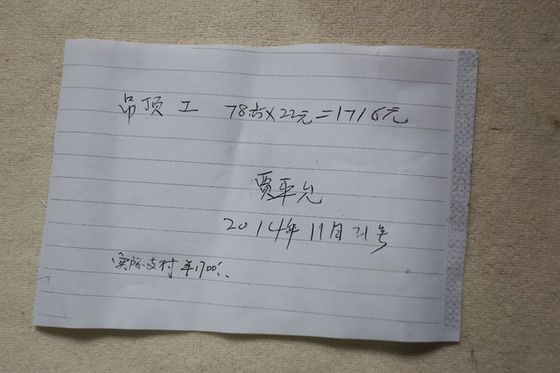 吊顶工 78方×22元=1716元
贾平允
2014年11月21号
实际支付¥1700.